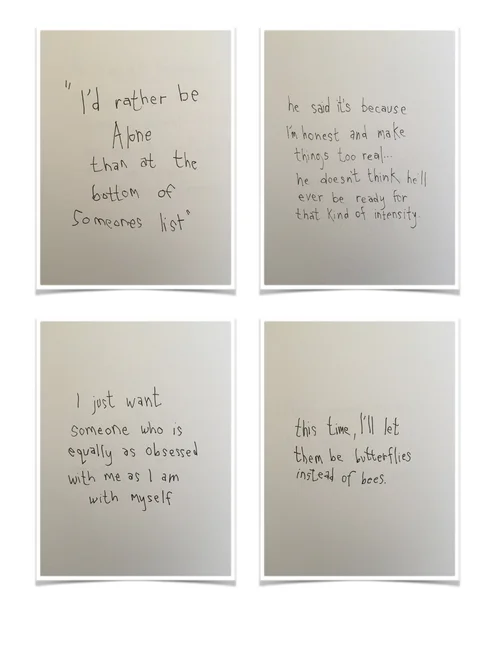 "I'd rather be
Alone
than at the
bottom of
Someones list"
he said it's because
I'm honest and make
things too real...
he doesn't think he'll
ever be ready for
that kind of intensity.
I just want
someone who is
equally as obsessed
with me as I am
with myself
this time, I'll let
them be butterflies
instead of bees.